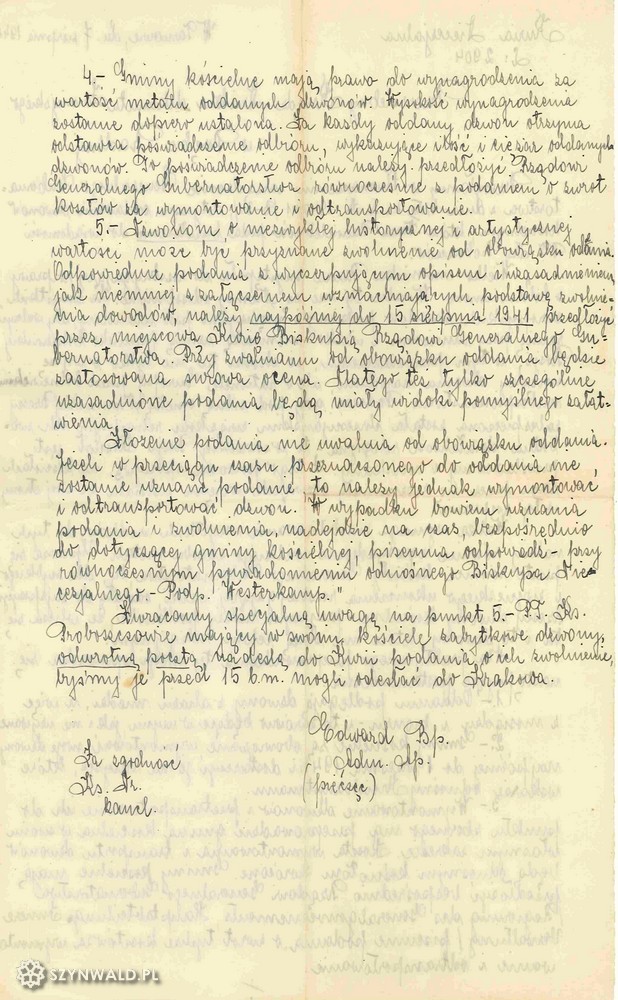 4.- Gminy kościelne mają prawo do wynagrodzenia za
wartość metalu oddanych dzwonów. Wysokość wynagrodzenia
zostanie dopiero ustalona. Za każdy oddany dzwon otrzyma
odstawca poświadczenie odbióru, wykazujące ilość i ciężar oddanych
dzwonów. To poświadczenie odbióru należy przedłożyć Rządowi
Generalnego Gubernatorstwa równocześnie z podaniem o zwrot
kosztów za wymontowanie i odtransportowanie.
5.- Dzwonom o niezwykłej historycznej i artystycznej
wartości może być przyznane zwolnienie od obowiązku oddania.
Odpowiednie podania z wyczerpującym opisem i uzasadnieniem,
jak niemniej z załączeniem wzmacniających podstawę zwolnie-
nia dowodów, należy najpóźniej do 15 sierpnia 1941 przedłożyć
przez miejscową Kurię Biskupią Rządowi Generalnego Gu-
bernatorstwa. Przy zwalnianiu od obowiązku oddania będzie
zastosowana surowa ocena. Dlatego też tylko szczególnie
uzasadnione podania będą miały widoki pomyślnego załat-
wienia.
Złożenie podania nie uwalnia od obowiązku oddania.
Jeżeli w przeciągu czasu przeznaczonego do oddania nie
zostanie uznane podanie to należy jednak wymontować
i odtransportować dzwon. W wypadku bowiem uznania
podania i zwolnienia, nadejdzie na czas, bezpośrednio
do dotyczącej gminy kościelnej, pisemna odpowiedź - przy
równoczesnym powiadomieniu odnośnego Biskupa Die-
cezjalnego.- Podp. Westerkamp."
Zwracamy specjalną uwagę na punkt 5.- P.T. Ks.
Proboszczowie mający w swoim kościele zabytkowe dzwony,
odwrotną pocztą nadeślą do Kurii podania o ich zwolnienie,
byśmy je przed 15 b.m. mogli odesłać do Krakowa.
Edward Bp.
Adm. Ap.
(pieczęć)
Za zgodność
Ks. Dr.
kancl.
SZYNWALD.PL